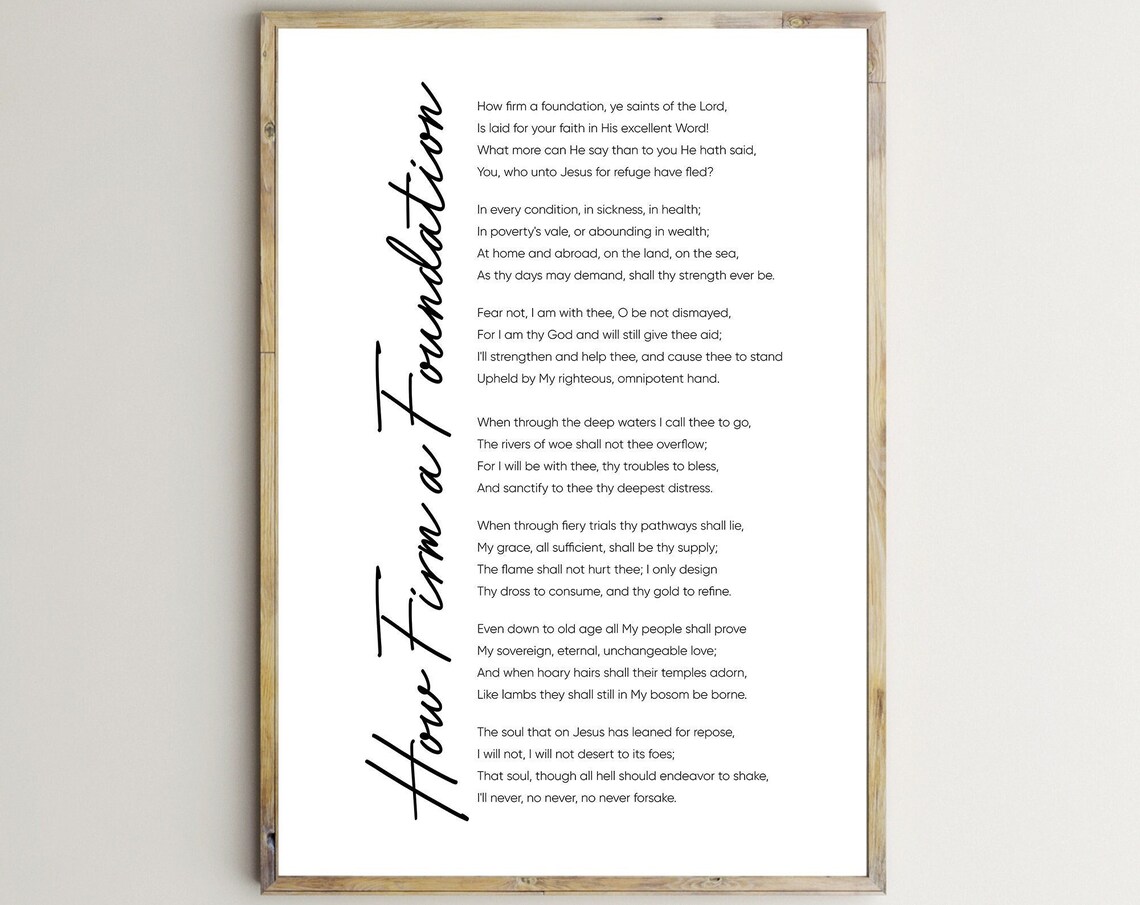 How Firm a Foundation
How firm a foundation, ye saints of the Lord,
Is laid for your faith in His excellent Word!
What more can He say than to you He hath said,
You, who unto Jesus for refuge have fled?
In every condition, in sickness, in health;
In poverty's vale, or abounding in wealth;
At home and abroad, on the land, on the sea,
As thy days may demand, shall thy strength ever be.
Fear not, I am with thee, O be not dismayed,
For I am thy God and will still give thee aid;
I'll strengthen and help thee, and cause thee to stand
Upheld by My righteous, omnipotent hand.
When through the deep waters I call thee to go,
The rivers of woe shall not thee overflow;
For I will be with thee, thy troubles to bless,
And sanctify to thee thy deepest distress.
When through fiery trials thy pathways shall lie,
My grace, all sufficient, shall be thy supply;
The flame shall not hurt thee; I only design
Thy dross to consume, and thy gold to refine.
Even down to old age all My people shall prove
My sovereign, eternal, unchangeable love;
And when hoary hairs shall their temples adorn,
Like lambs they shall still in My bosom be borne.
The soul that on Jesus has leaned for repose,
I will not, I will not desert to its foes;
That soul, though all hell should endeavor to shake,
I'll never, no never, no never forsake.